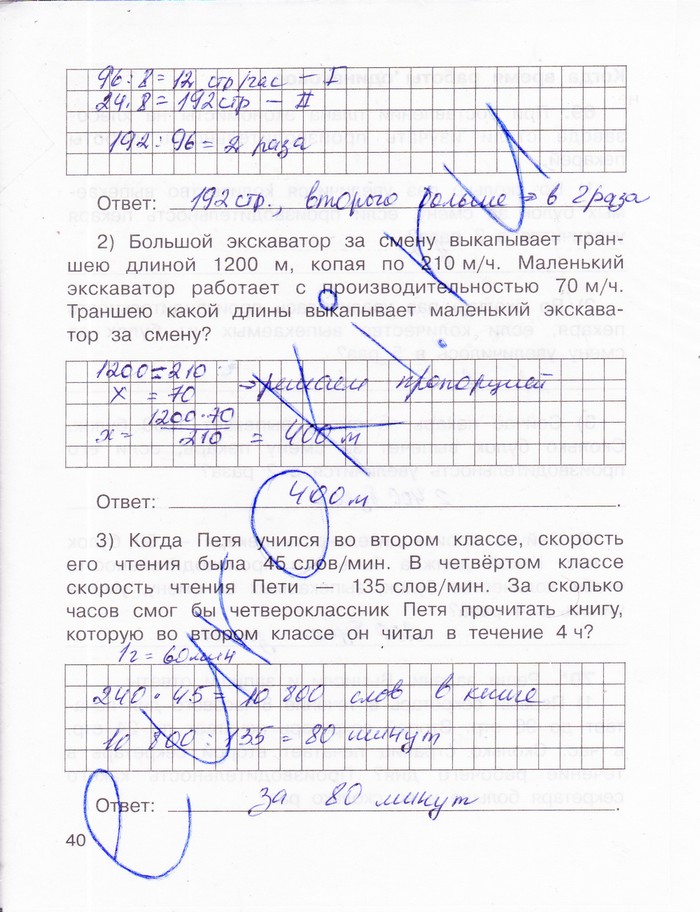 96 : 8 = 12 стр/час — I
24 · 8 = 192 стр — II
192 : 96 = 2 раза
Ответ: 192 стр., второго больше в 2 раза
2) Большой экскаватор за смену выкапывает тран-
шею длиной 1200 м, копая по 210 м/ч. Маленький
экскаватор работает с производительностью 70 м/ч.
Траншею какой длины выкапывает маленький экскава-
тор за смену?
1200 = 210
x = 70 → решаем пропорцией
x = 1200·70 / 210 = 400 м
Ответ: 400 м.
3) Когда Петя учился во втором классе, скорость
его чтения была 45 слов/мин. В четвёртом классе
скорость чтения Пети — 135 слов/мин. За сколько
часов смог бы четвероклассник Петя прочитать книгу,
которую во втором классе он читал в течение 4 ч?
1г = 60 мин
240 · 45 = 10 800 слов в книге
10 800 : 135 = 80 минут
Ответ: за 80 минут.
40